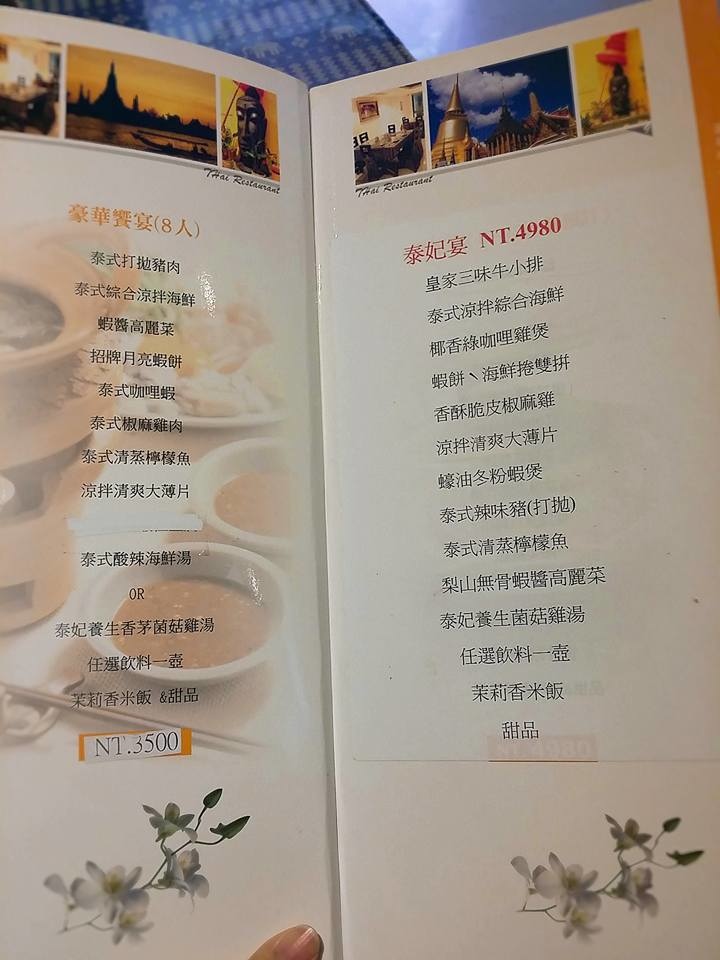 THai Restaurant
豪華饗宴(8人)
泰式打拋豬肉
泰式綜合涼拌海鮮
蝦醬高麗菜
招牌月亮蝦餅
泰式咖哩蝦
泰式椒麻雞肉
泰式清蒸檸檬魚
涼拌清爽大薄片
泰式酸辣海鮮湯
OR
泰妃養生香茅菌菇雞湯
任選飲料一壺
茉莉香米飯 &甜品
NT.3500
THai Restaurant
泰妃宴 NT.4980
皇家三味牛小排
泰式涼拌綜合海鮮
椰香綠咖哩雞煲
蝦餅、海鮮捲雙拼
香酥脆皮椒麻雞
涼拌清爽大薄片
蠔油冬粉蝦煲
泰式辣味豬(打拋)
泰式清蒸檸檬魚
梨山無骨蝦醬高麗菜
泰妃養生菌菇雞湯
任選飲料一壺
茉莉香米飯
甜品